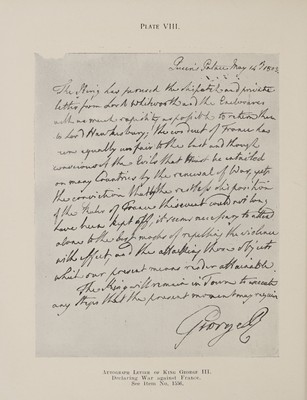 PLATE VIII.
Queen's Palace May 14th 1803
The King has perused the dispatch and private
letter from Lord Whitworth and the Enclosures
with as much rapidity as possible to return them
to Lord Hawkesbury; the conduct of France has
been equally unfair to the last and though
conscious of the Evils that must be entailed
on many Countries by the renewal of War, yet
the conviction that the restless disposition
of the Ruler of France this event could not long
have been kept off, it seems necessary to attend
alone to the best modes of repelling the violence
with effect, and the attacking those objects
which our present means render attainable.
The King will remain in Town to execute
any Steps that the present moment may require
George R
AUTOGRAPH LETTER OF KING GEORGE III.
Declaring War against France.
See Item No. 1556.